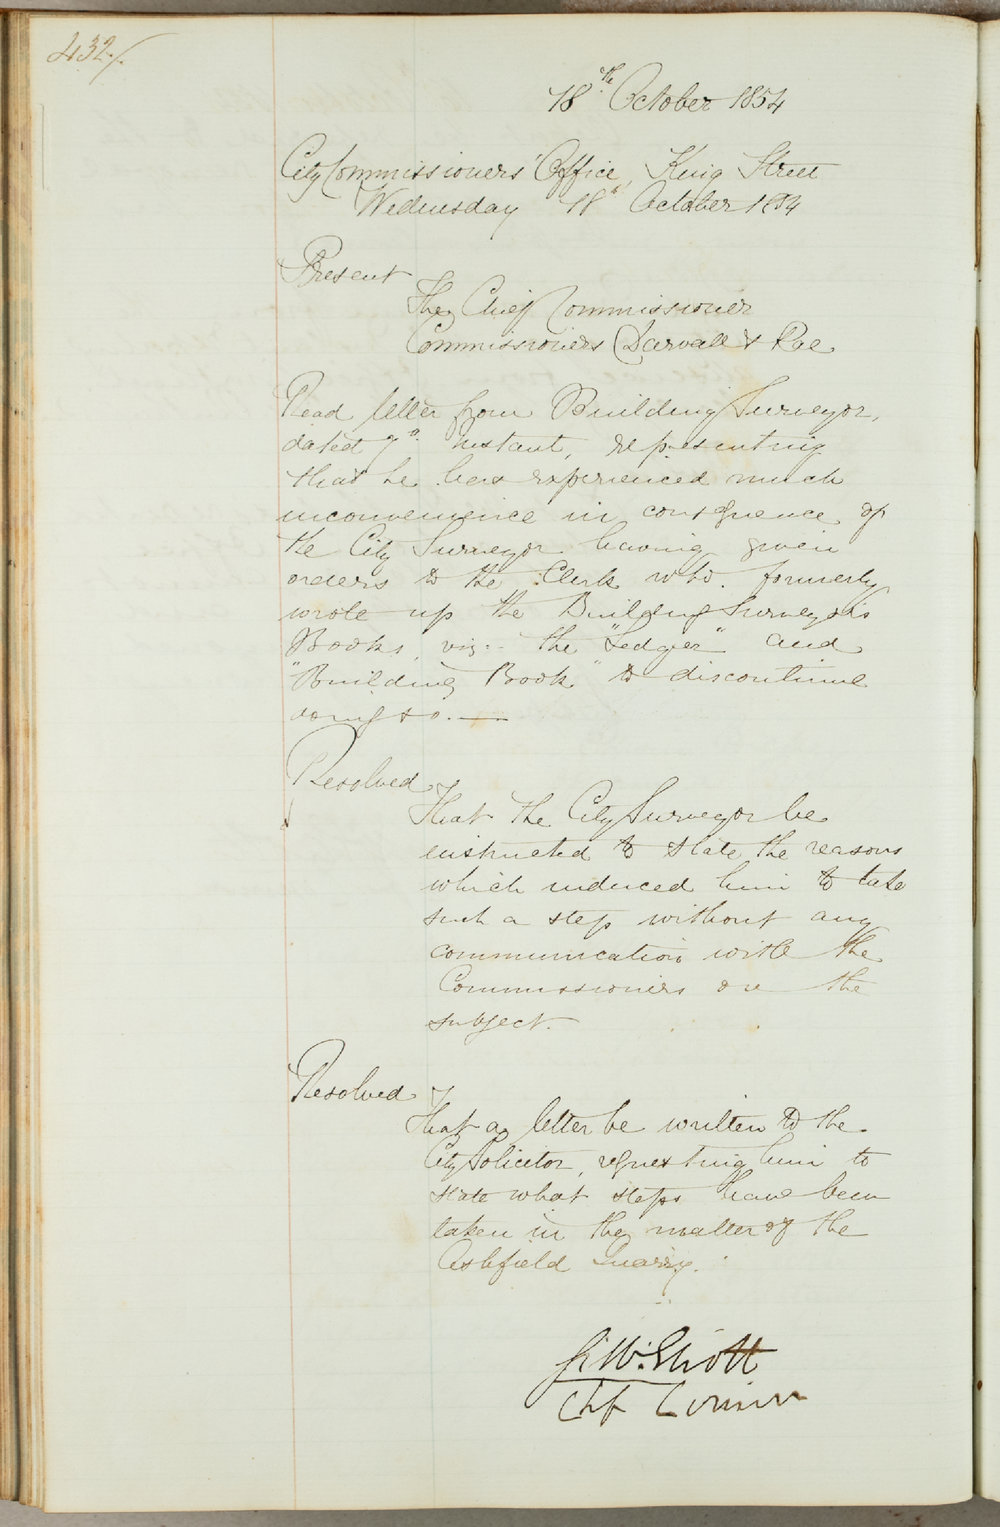 432./.
18th October 1854
City Commissioners' Office, King Street
Wednesday 18th October 1854
Present
The Chief Commissioner
Commissioners Darvall & Rae
Read letter from Building Surveyor,
dated 7th instant, representing
that he has experienced much
inconvenience in consequence of
the City Surveyor having given
orders to the Clerk who formerly
wrote up the Building Surveyor's
Books, viz:- the "Ledger" and
"Building Book" to discontinue
doing so.—
Resolved
That the City Surveyor be
instructed to state the reasons
which induced him to take
such a step without any
communication with the
Commissioners on the
subject.
Resolved
That a letter be written to the
City Solicitor, requesting him to
state what steps have been
taken in the matter of the
Ashfield Quarry.
G: W: Eliott
Chf Commr